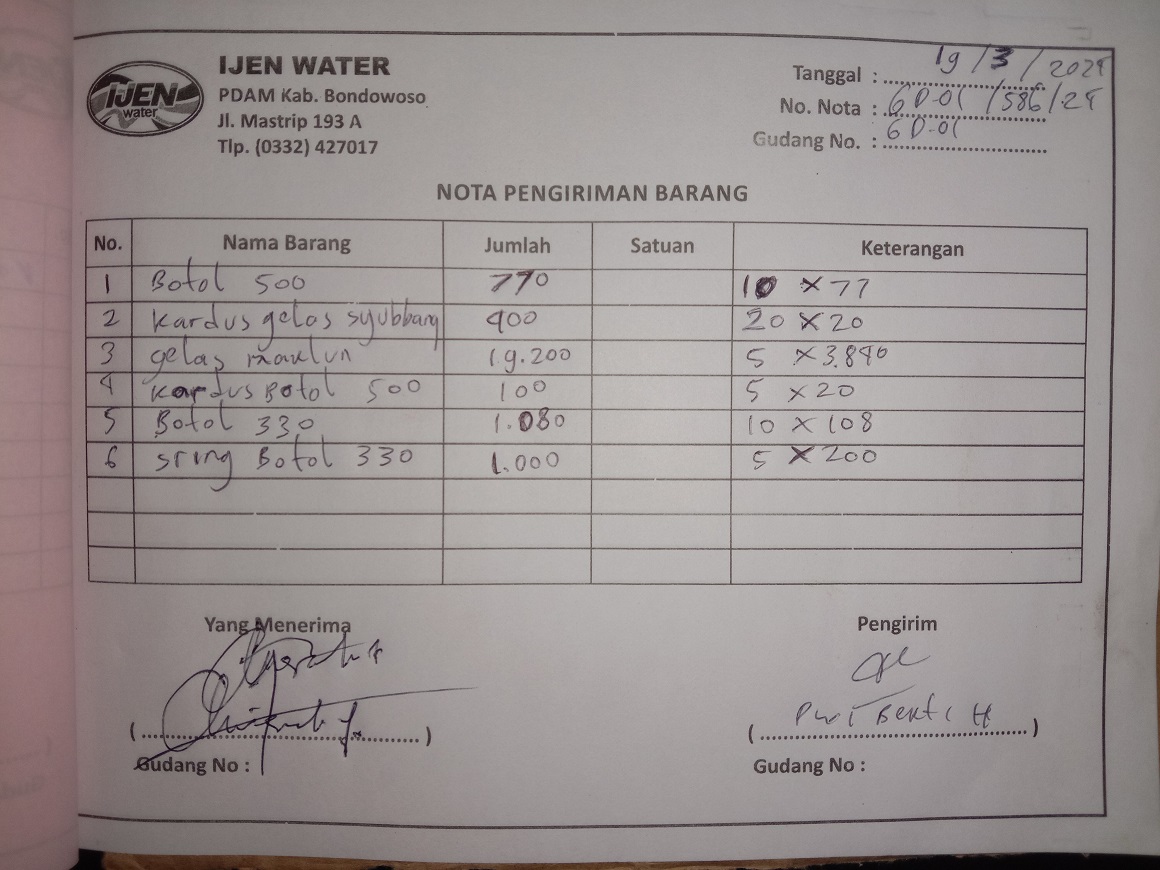 IJEN water
IJEN WATER
PDAM Kab. Bondowoso
Jl. Mastrip 193 A
Tlp. (0332) 427017
Tanggal : 19/3/2024
No. Nota : GD-01/586/24
Gudang No. : GD-01
NOTA PENGIRIMAN BARANG
No. Nama Barang Jumlah Satuan Keterangan
1 Botol 500 770 10 x 77
2 Kardus gelas syubbang 400 20 x 20
3 gelas 19.200 5 x 3.840
4 Kardus Botol 500 100 5 x 20
5 Botol 330 1.080 10 x 108
6 sring Botol 330 1.000 5 x 200
Yang Menerima Pengirim
( ) ( Dwi Bekti H )
Gudang No : Gudang No :